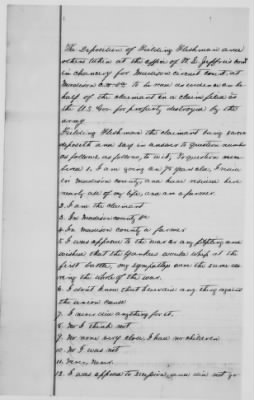 The Deposition of Fielding Fleshman and
others taken at the office of
in chancery for Madison circuit court, at
Madison C.H. Va to be read as evidence on be
half of the claimant in a claim filed
the U.S. Gov for property destroyed by the
army
Fielding Fleshman the claimant being sworn
deposeth and say in answer to question number
as follows as follows, to wit, To question num
ber 1, I am going on 74 years old, I reside
in Madison county and have resided here
nearly all of my life, and am a farmer
2. I am the claimant
3. In Madison county Va
4. In Madison county a farmer
5. I was opposed to the war as any fighting and
wished that the yankees would whip at the
first battle, my sympathy was the same du
ring the whole of the war.
6. I don't know that I ever did any thing against
the union cause
7. I never did anything for it.
8. No I think not
9. No none very close, I had no children
10. No I was not
11. Never, Never.
12. I was oppose to secession, and did not go